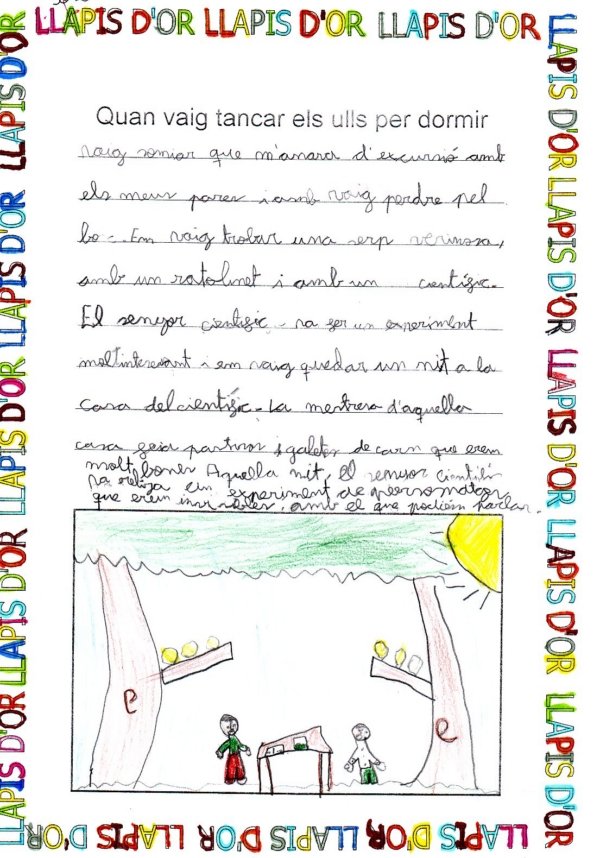 LLAPIS D'OR LLAPIS D'OR LLAPIS D'OR
Quan vaig tancar els ulls per dormir
vaig somiar que m'anava d'excursió amb
els meus pares i amb vaig perdre pel
bo-. Em vaig trobar una serp verinosa,
amb un ratolinet i amb un científic.
El senyor científic - va fer un experiment
molt interessant i em vaig quedar un nit a la
casa del científic. La mestresa d'aquella
casa feia i galetes de carn que eren
molt bones Aquella nit, el senyor científic
va un experiment de
que eren invisibles, amb el que podiem parlar.
e
e
LLAPIS D'OR LLAPIS D'OR LLAPIS D'OR LLAPIS D'OR LLAPIS D'OR
LLAPIS D'OR LLAPIS D'OR LLAPIS D'OR LLAPIS D'OR LLAPIS D'OR
LLAPIS D'OR LLAPIS D'OR LLAPIS D'OR